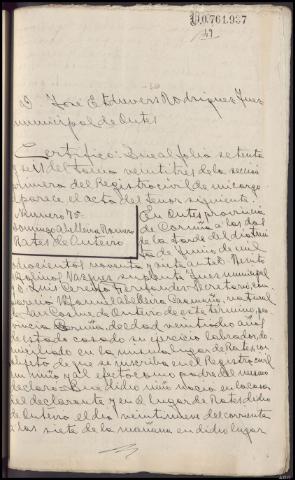 N.0.761.987
D José Etchevers Rodriguez Juez
municipal de Outes
Certifico: Que al folio setenta
y seis del tomo veintitres de la seccion
primera del Registro civil de mi cargo
aparece el acta del tenor siguiente
Numero 75.
Domingo Abelleira Romero
Rates de Outeiro
En Outes provincia
de Coruña a las dos
de la tarde del dia treinta
de Junio de mil
ochocientos noventa y
municipal
D Luis Cerejo Fernandez Secretario, com
Abelleira Caamaño, natural
de San Cosme de Outeiro de este termino, pro
vincia Coruña, de edad veintiocho años
de estado casado su ejercicio labrador, do
miciliado en la mismo lugar de Rates, con
objeto de que se inscriba en el Registro civil
un niño y al efecto como padre del mismo
declaro: Que dicho niño nacio en la casa
del declarante y en el lugar de Rates dicho
de Outeiro el dia veintinueve del corriente
a las siete de la mañana en dicho lugar